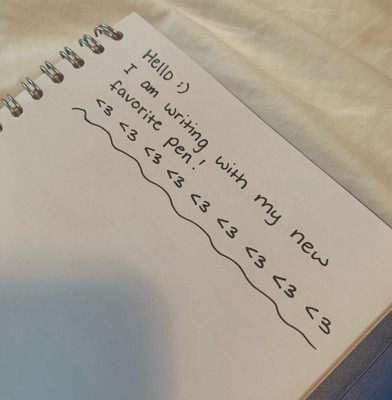 Hello :)
I am writing with my new
favorite pen!
<3 <3 <3 <3 <3 <3 <3 <3 <3